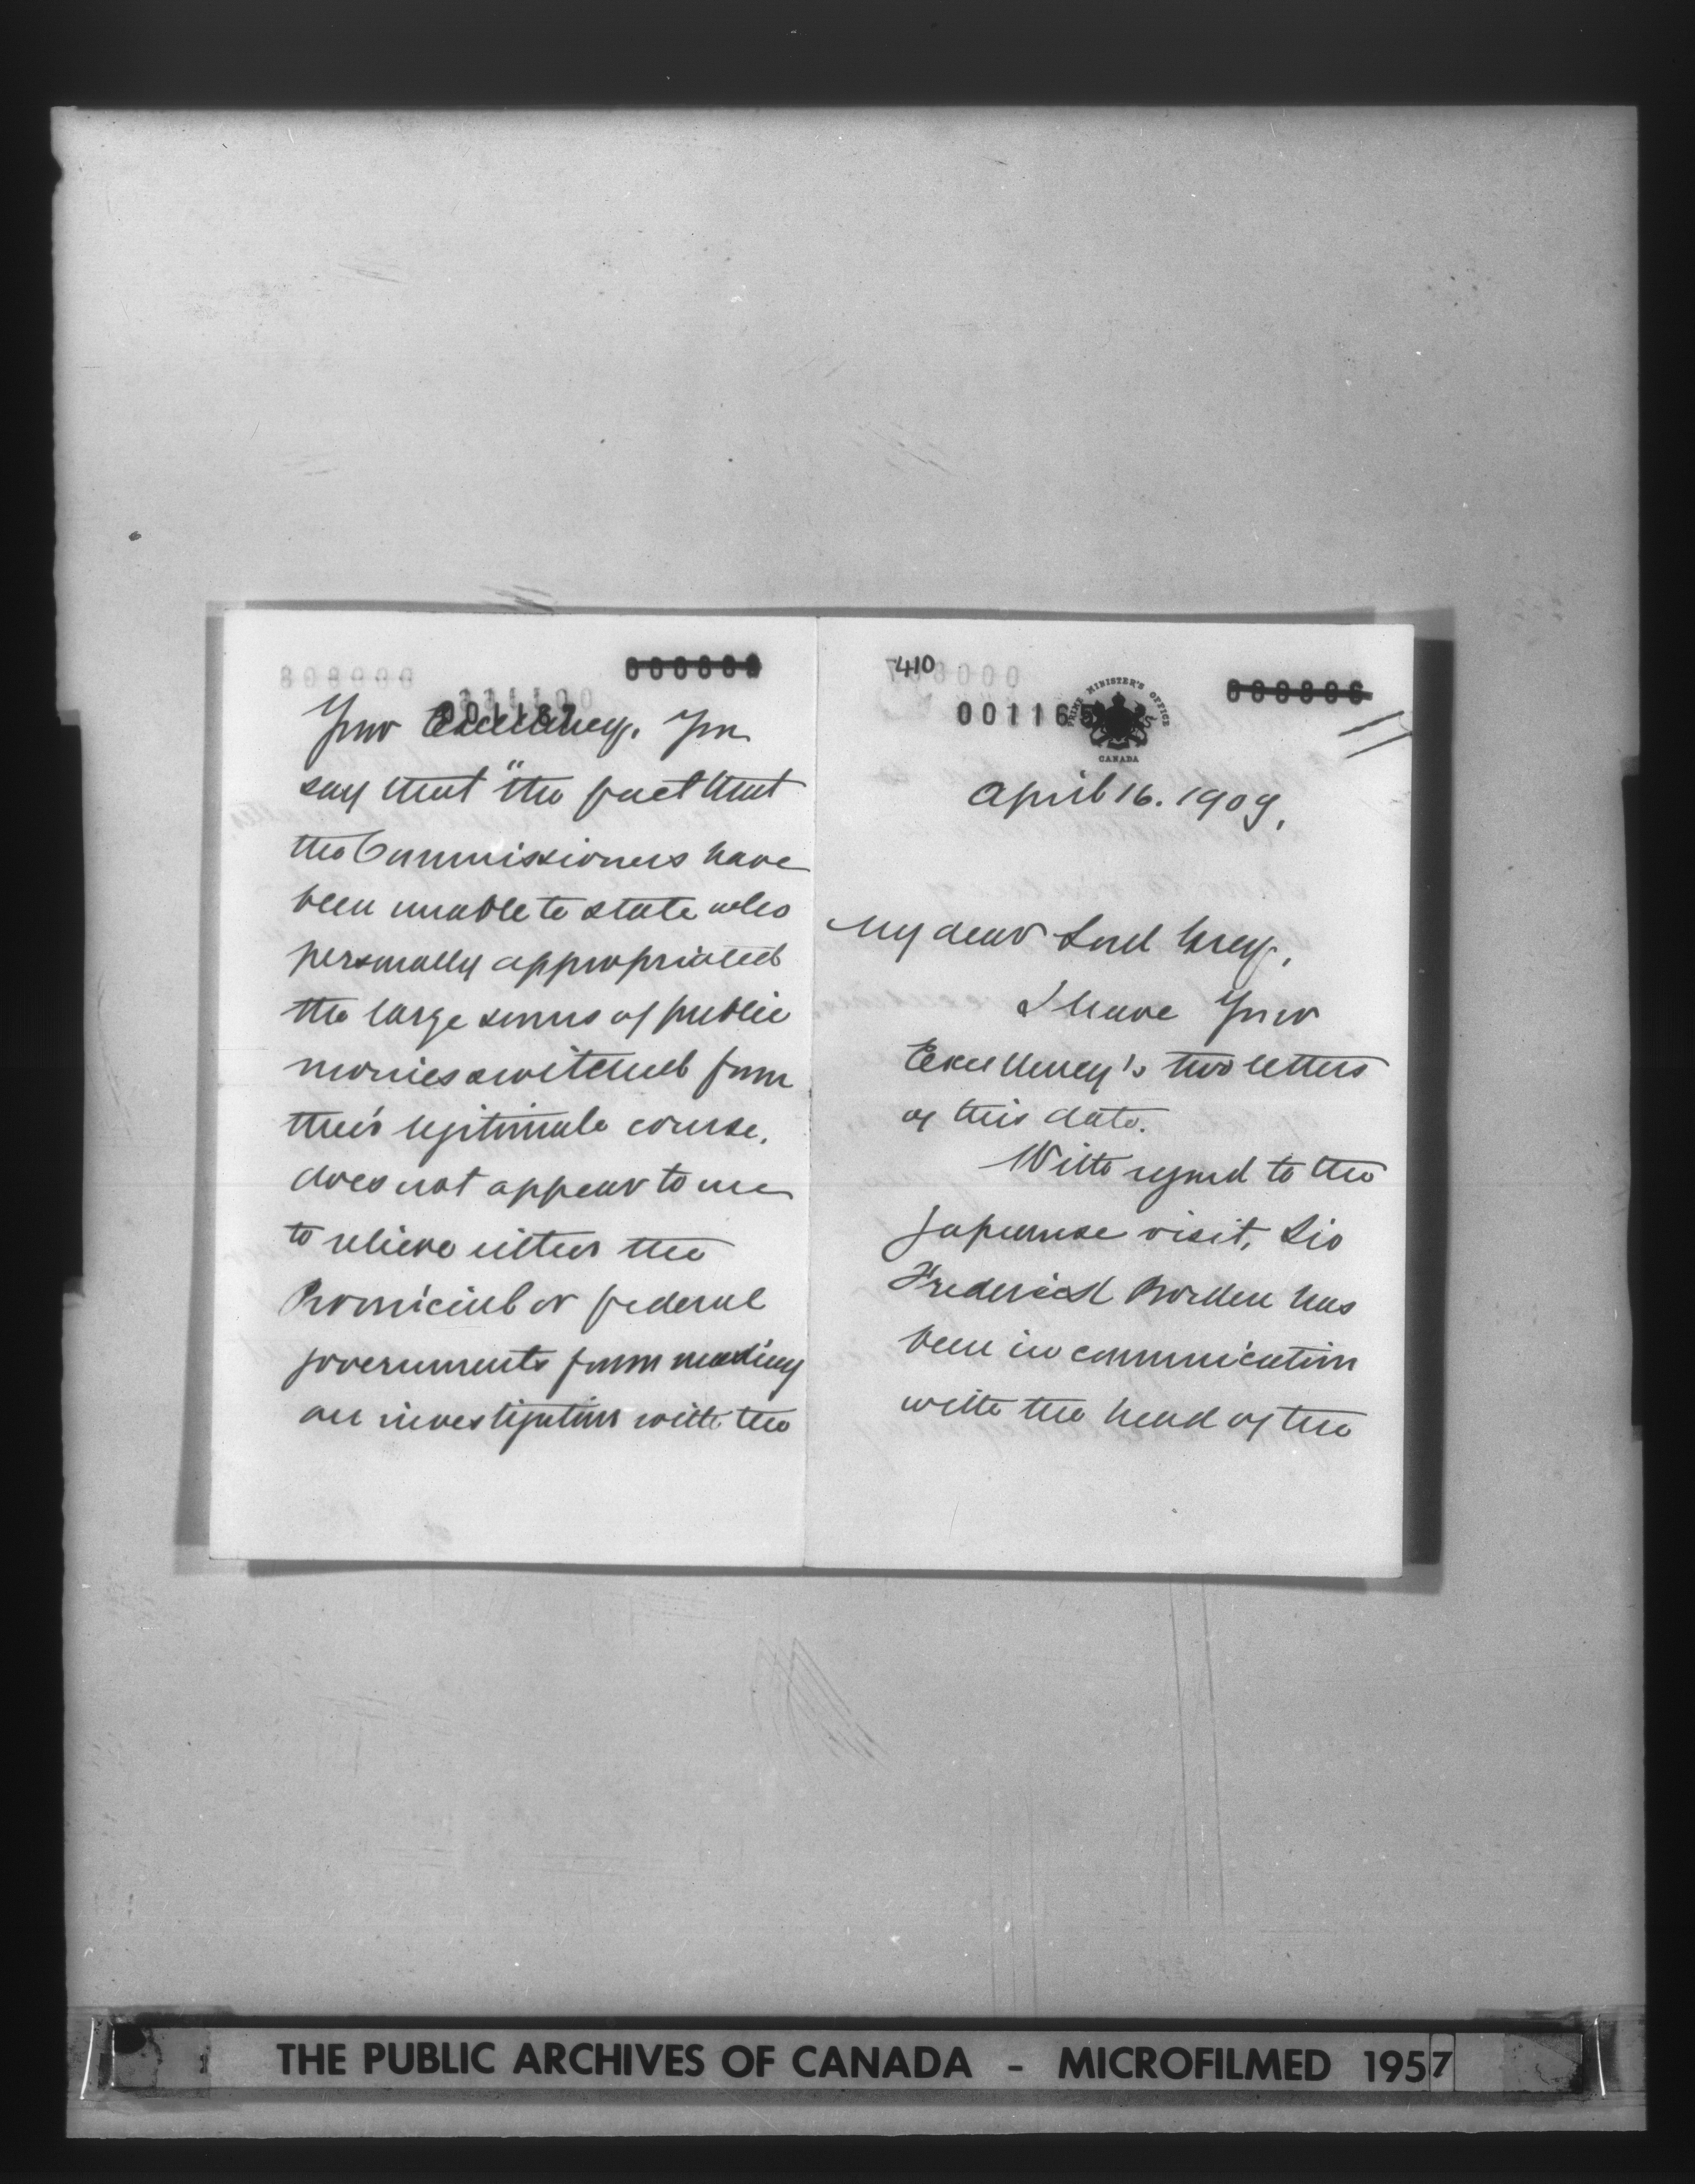 Your Excellency. You
say that "the fact that
the Commissioners have
been unable to state who
personally appropriated
the large sums of public
monies switched from
their legitimate course,
does not appear to me
to relieve either the
Provincial or federal
governments from making
an investigation with the
410
001165
PRIME MINISTER'S OFFICE
CANADA
April 16. 1909.
My dear Lord Grey,
I have Your
Excellency's two letters
of this date.
With regard to the
Japanese visit, Sir
Frederick Borden has
been in communication
with the head of the
THE PUBLIC ARCHIVES OF CANADA - MICROFILMED 1957